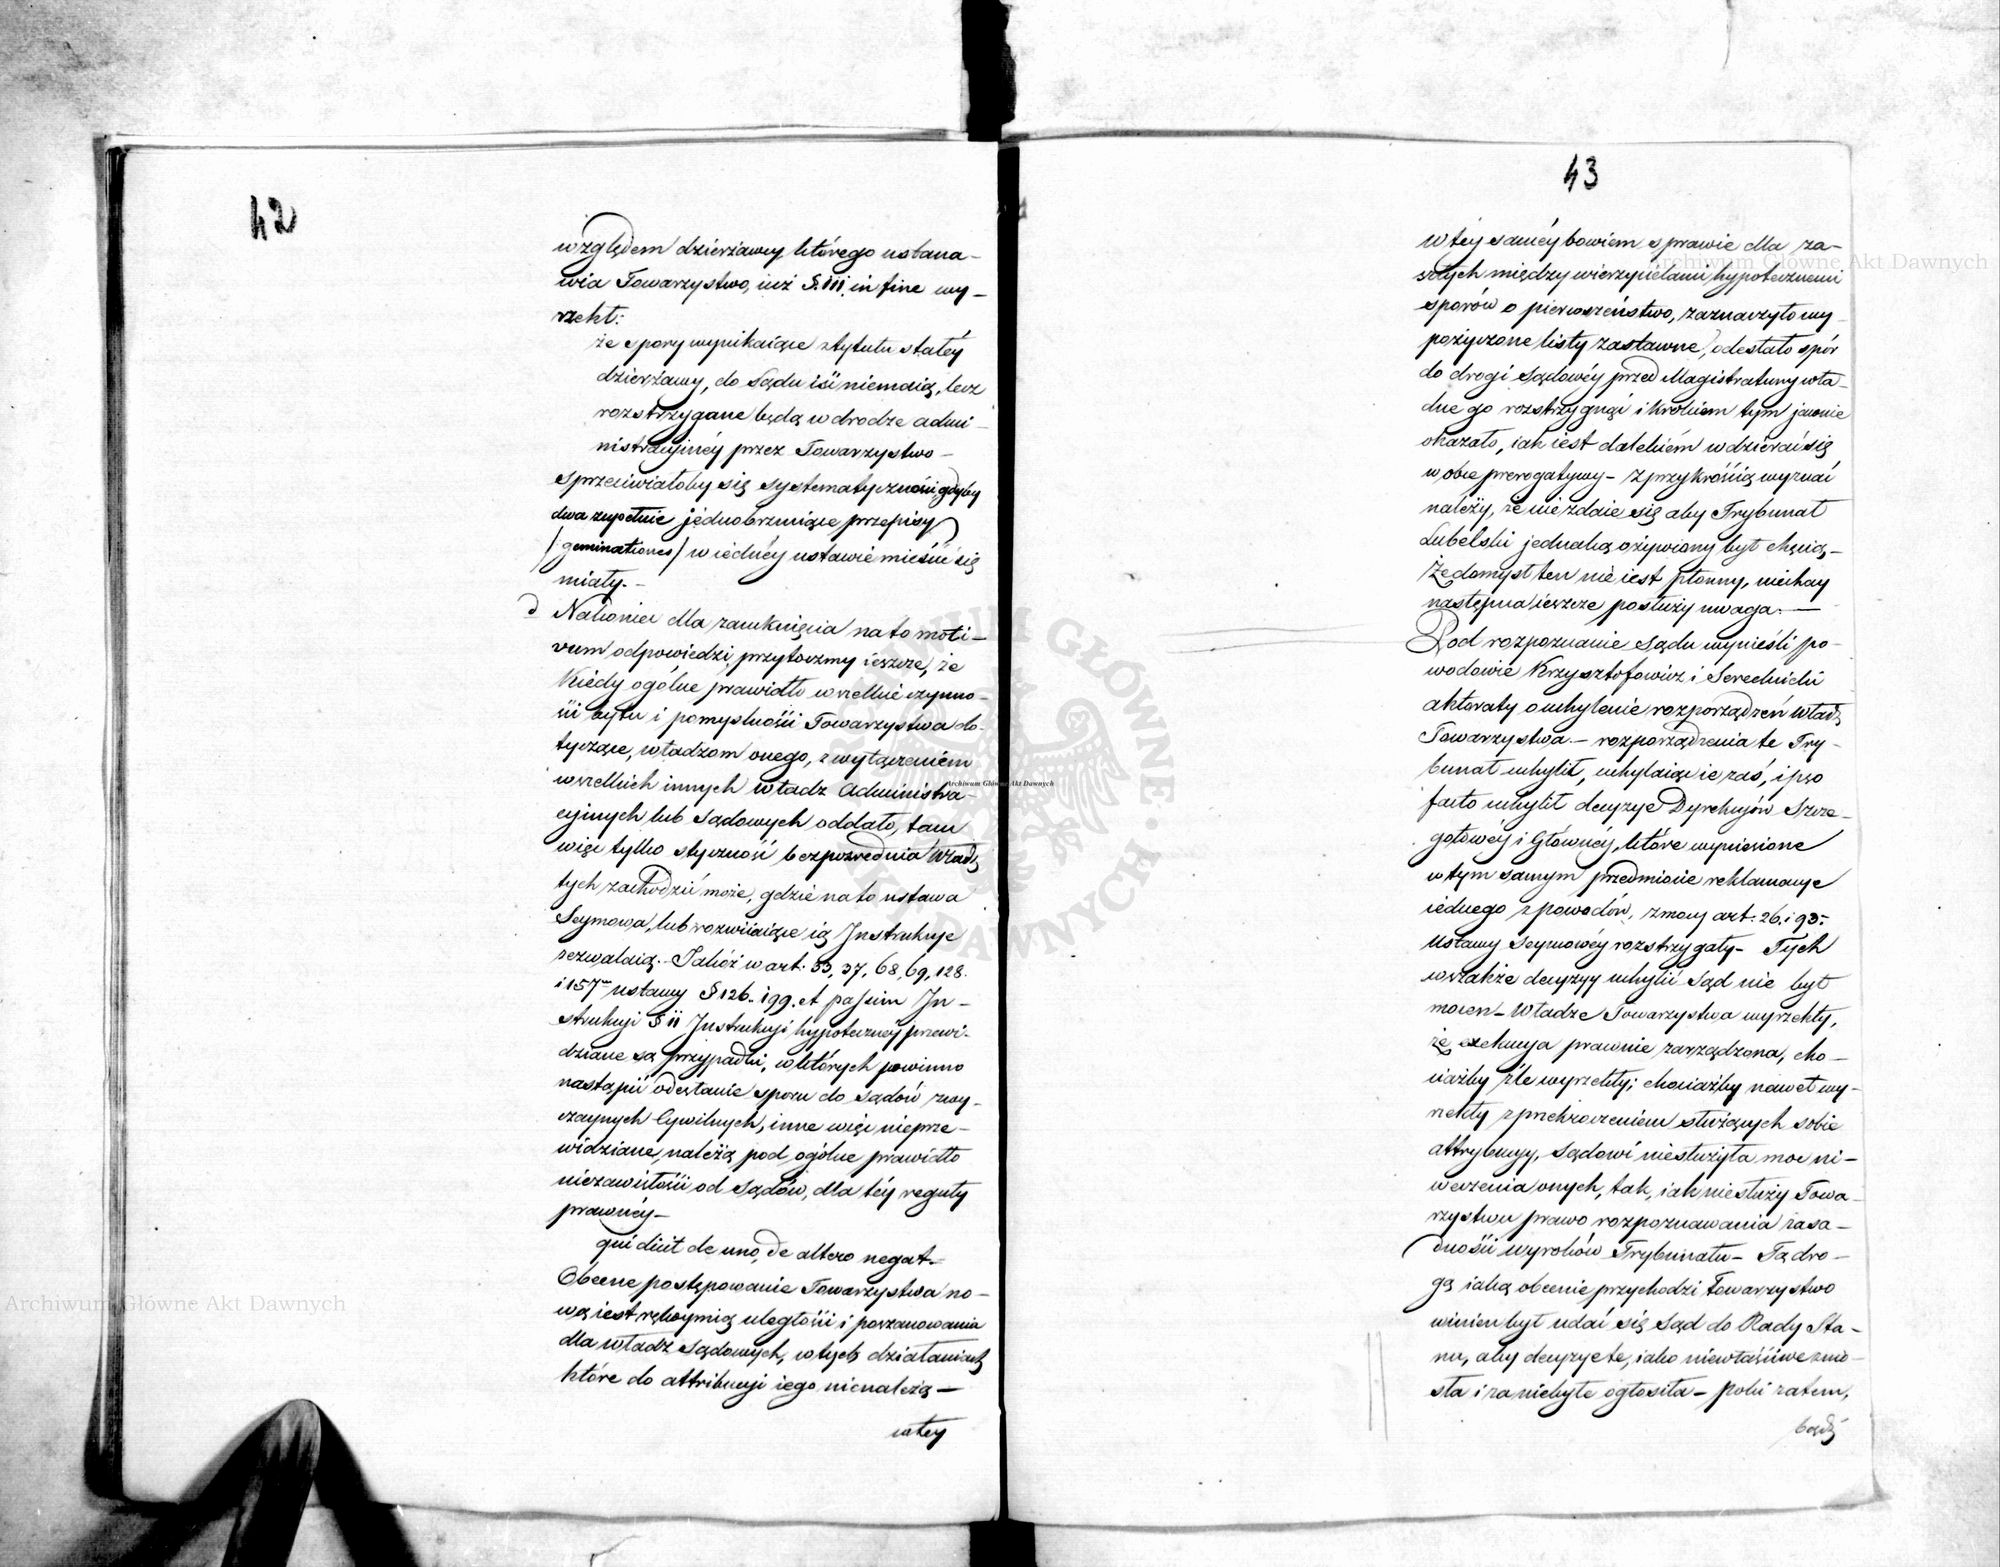 42
względem dzierżawcy którego ustana-
wia Towarzystwo, iuż §. 111 in fine wy-
rzekł:
że spory wynikaiące z tytułu stałéy
dzierżawy, do Sądu iśï niemaią, lecz
rozstrzygane będą w drodze admi-
nistracyinéy przez Towarzystwo-
sprzeciwiałoby się systematyczności, gdyby
dwa zupełnie jednobrzmiące przepisy
/:geminationes/ w iednéy ustawie mieśćić się
miały.-
d Nakoniec dla zamknięcia na to moti-
vum odpowiedzi, przytoczmy ieszcze, że
Kiedy ogólne prawidło wszelkie czynno-
ści bytu i pomyslności Towarzystwa do-
tyczące, władzom onego, z wyłączeniem
wszelkich innych władz Administra-
cyinych lub Sądowych oddało, tam
więc tylko styczność bezpośrednia Władz
tych zachodzić może, gdzie na to ustawa
Seymowa, lub rozwiiaiące ią Instrukcye
zezwalaią.- Jakóż w art. 33, 37, 68, 69, 128.
i 157m ustawy § 126. i 99. et passim In-
strukcyi § 11 Instrukcyi hypotecznéy przewi-
dziane są przypadki, w których powinno
nastąpić odesłanie sporu do Sądów zwy-
czaynych Cywilnych, inne więc nieprze-
widziane, należą pod ogólne prawidło
niezawisłości od Sądów, dla téy reguły
prawnéy-
qui dicit de uno, de altero negat.-
Obecne postępowanie Towarzystwa no-
wą iest rękoymią uległości i poszanowania
dla władz Sądowych, w tych działaniach
które do attribucyi iego nienależą-
w tey
43
w tey saméy bowiem sprawie dla za-
szłych między wierzycielami hypotecznemi
sporów o pierwszeństwo, zaznaczyło wy
pożyczone listy zastawne, odesłało spór
do drogi sądowéy przed Magistratury wła-
dne go rozstrzygnąć i krokiem tym jawnie
okazało, iak iest dalekiém wdzierać się
w obce prerogatywy- Z przykrością wyznać
należy, że niezdaie się aby Trybunał
Lubelski jednaką ożywiony był chęcią,-
Że domysł ten nie iest płonny, niechay
następna ieszcze posłuży uwaga.-
Pod rozpoznanie sądu wynieśli po-
wodowie Krzysztofowicz i Serednicki
aktoraty o uchylenie rozporządzeń Władz
Towarzystwa.- rozporządzenia te Try-
bunał uchylił, uchylaiąc ie zaś, ipso
facto uchylił decyzye Dyrekcyów Szcze-
gołowéy i Głównéy, które wyniesione
w tym samym przedmiocie reklamacye
iednego z powodów, z mocy art. 26. i 93.
Ustawy Seymowéy rozstrzygały- Tych
wszakże decyzyy uchylić Sąd nie był
mocen- Władze Towarzystwa wyrzekły,
że exekucya prawnie zarządzona, cho-
ciażby źle wyrzekły; chociażby nawet wy-
rzekły z przekroczeniem służących sobie
attrybucyy, Sądowi niesłużyła moc ni-
weczenia onych, tak, iak niesłuży Towa-
rzystwu prawo rozpoznawania zasa-
dności wyroków Trybunału- Tą dro-
gą iaką obecnie przychodzi Towarzystwo
winien był udać się Sąd do Rady Sta-
nu, aby decyzye te, iako niewłaściwe znio-
sła i za niebyłe ogłosiła- poki zatem,
bądź
Archiwum Główne Akt Dawnych
Archiwum Główne Akt Dawnych
Archiwum Główne Akt Dawnych
ARCHIWUM GŁÓWNE · AKT DAWNYCH ·